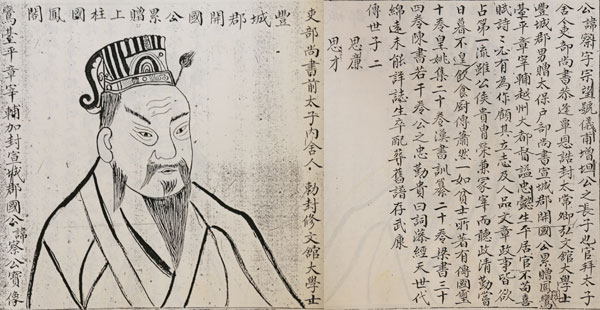 公諱察字宗望號儀甫增坦公之長子也官拜太子
舍人吏部尚書恭逢覃恩誥封太常卿弘文館大學士
豐城郡男贈太保戶部尚書宣城郡開國公累贈鳳閣鸞
臺平章宰輔越州大都督諡忠懿生平居官不苟喜
賦詩元有為你顧其立志及人品文章政事皆欲
占第一流雖公侯貴冑舉兼冢宰而聽政清勤嘗
日暮不遑飲食廚傳蕭然一如貧士所著有傳國璽
十卷皇姚集二十卷漢書訓纂二十卷梁書三十
四卷陳書若干卷公之忠勤貴曰詞藻經天世代
綿遠未能詳誌生卒配葬舊譜存武康
傳世子二
思廉
思才
吏部尚書前太子內舍人勅封修文館大學士
豐城郡開國公累贈上柱國鳳閣
鸞臺平章宰輔加封宣城郡國公諱察公寶像